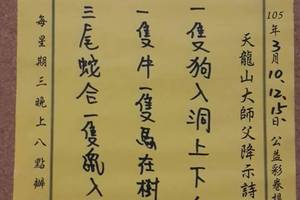 105年3月10.12.15日公益彩卷
天龍山大師父降示詩
一隻狗入洞上下
一隻牛一隻馬在樹
三尾蛇合一隻鼠入
每星期三晚上八點辦